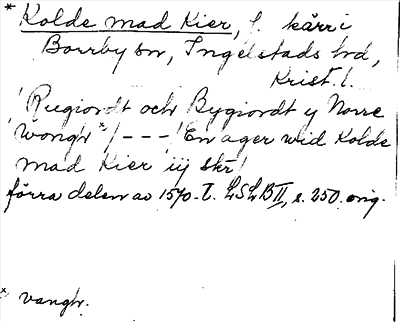 * Kolde mad Kier, f. kärr i
Borrby sn, Ingelstads hd,
Krist. l.
! Rugiordt och Bygiordt y Norre
Wongh x/ - - - ! En ager wid Kolde
mad Kier iij skr !
förra delen av 1570-t. LSLB II, s. 250. orig.
x vangh.